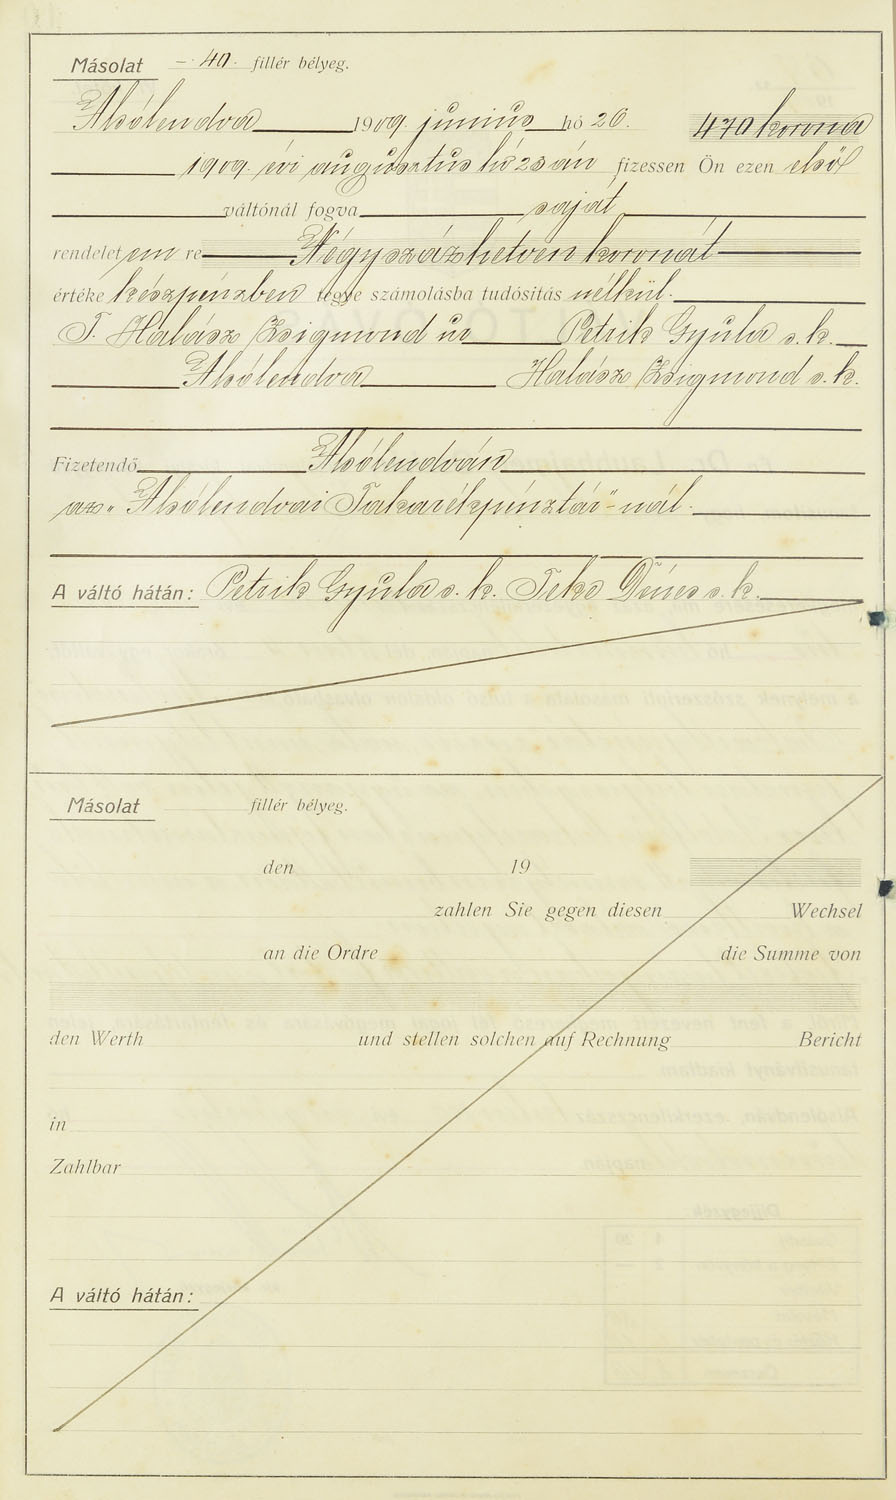 Másolat - 40. fillér bélyeg.
Alsólendva 1909. junius hó 26. 470 korona
1909. évi augusztus hó 25 án fizessen Ön ezen első
váltónál fogva saját
rendeletem re Négyszázhetven koronát
értéke készpénzben tegye számolásba tudósítás nélkül.
T. Halász Zsigmond úr Petrik Gyula s. k.
Alsólendva Halász Zsigmond s. k.
Fizetendő Alsólendván
az „Alsólendvai Takarékpénztár"-nál.
A váltó hátán: Petrik Gyula s. k. Teke Dénes s. k.
Másolat fillér bélyeg.
den 19
zahlen Sie gegen diesen Wechsel
an die Ordre die Summe von
den Werth und stellen solchen auf Rechnung Bericht
in
Zahlbar
A váltó hátán: